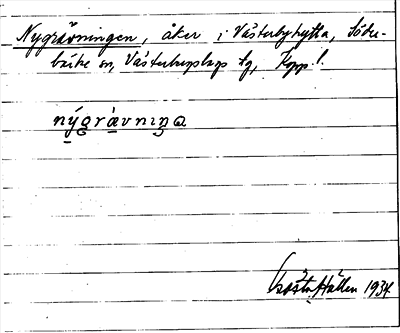 Nygrävningen, åker i Västerbyhytta, Söder-
bärke sn, Västerbergslags dg, Kopp. l.
nýgrávnıŋa
Gösta Hallen 1934